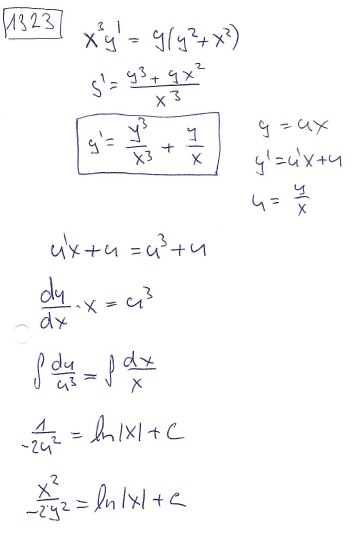 1323
x³y' = y(y²+x²)
y' = y³ + yx² / x³
y' = y³/x³ + y/x
y = ux
y' = u'x+u
u = y/x
u'x+u = u³+u
du/dx · x = u³
∫ du/u³ = ∫ dx/x
1/-2u² = ln|x| + C
x²/-2y² = ln|x| + C